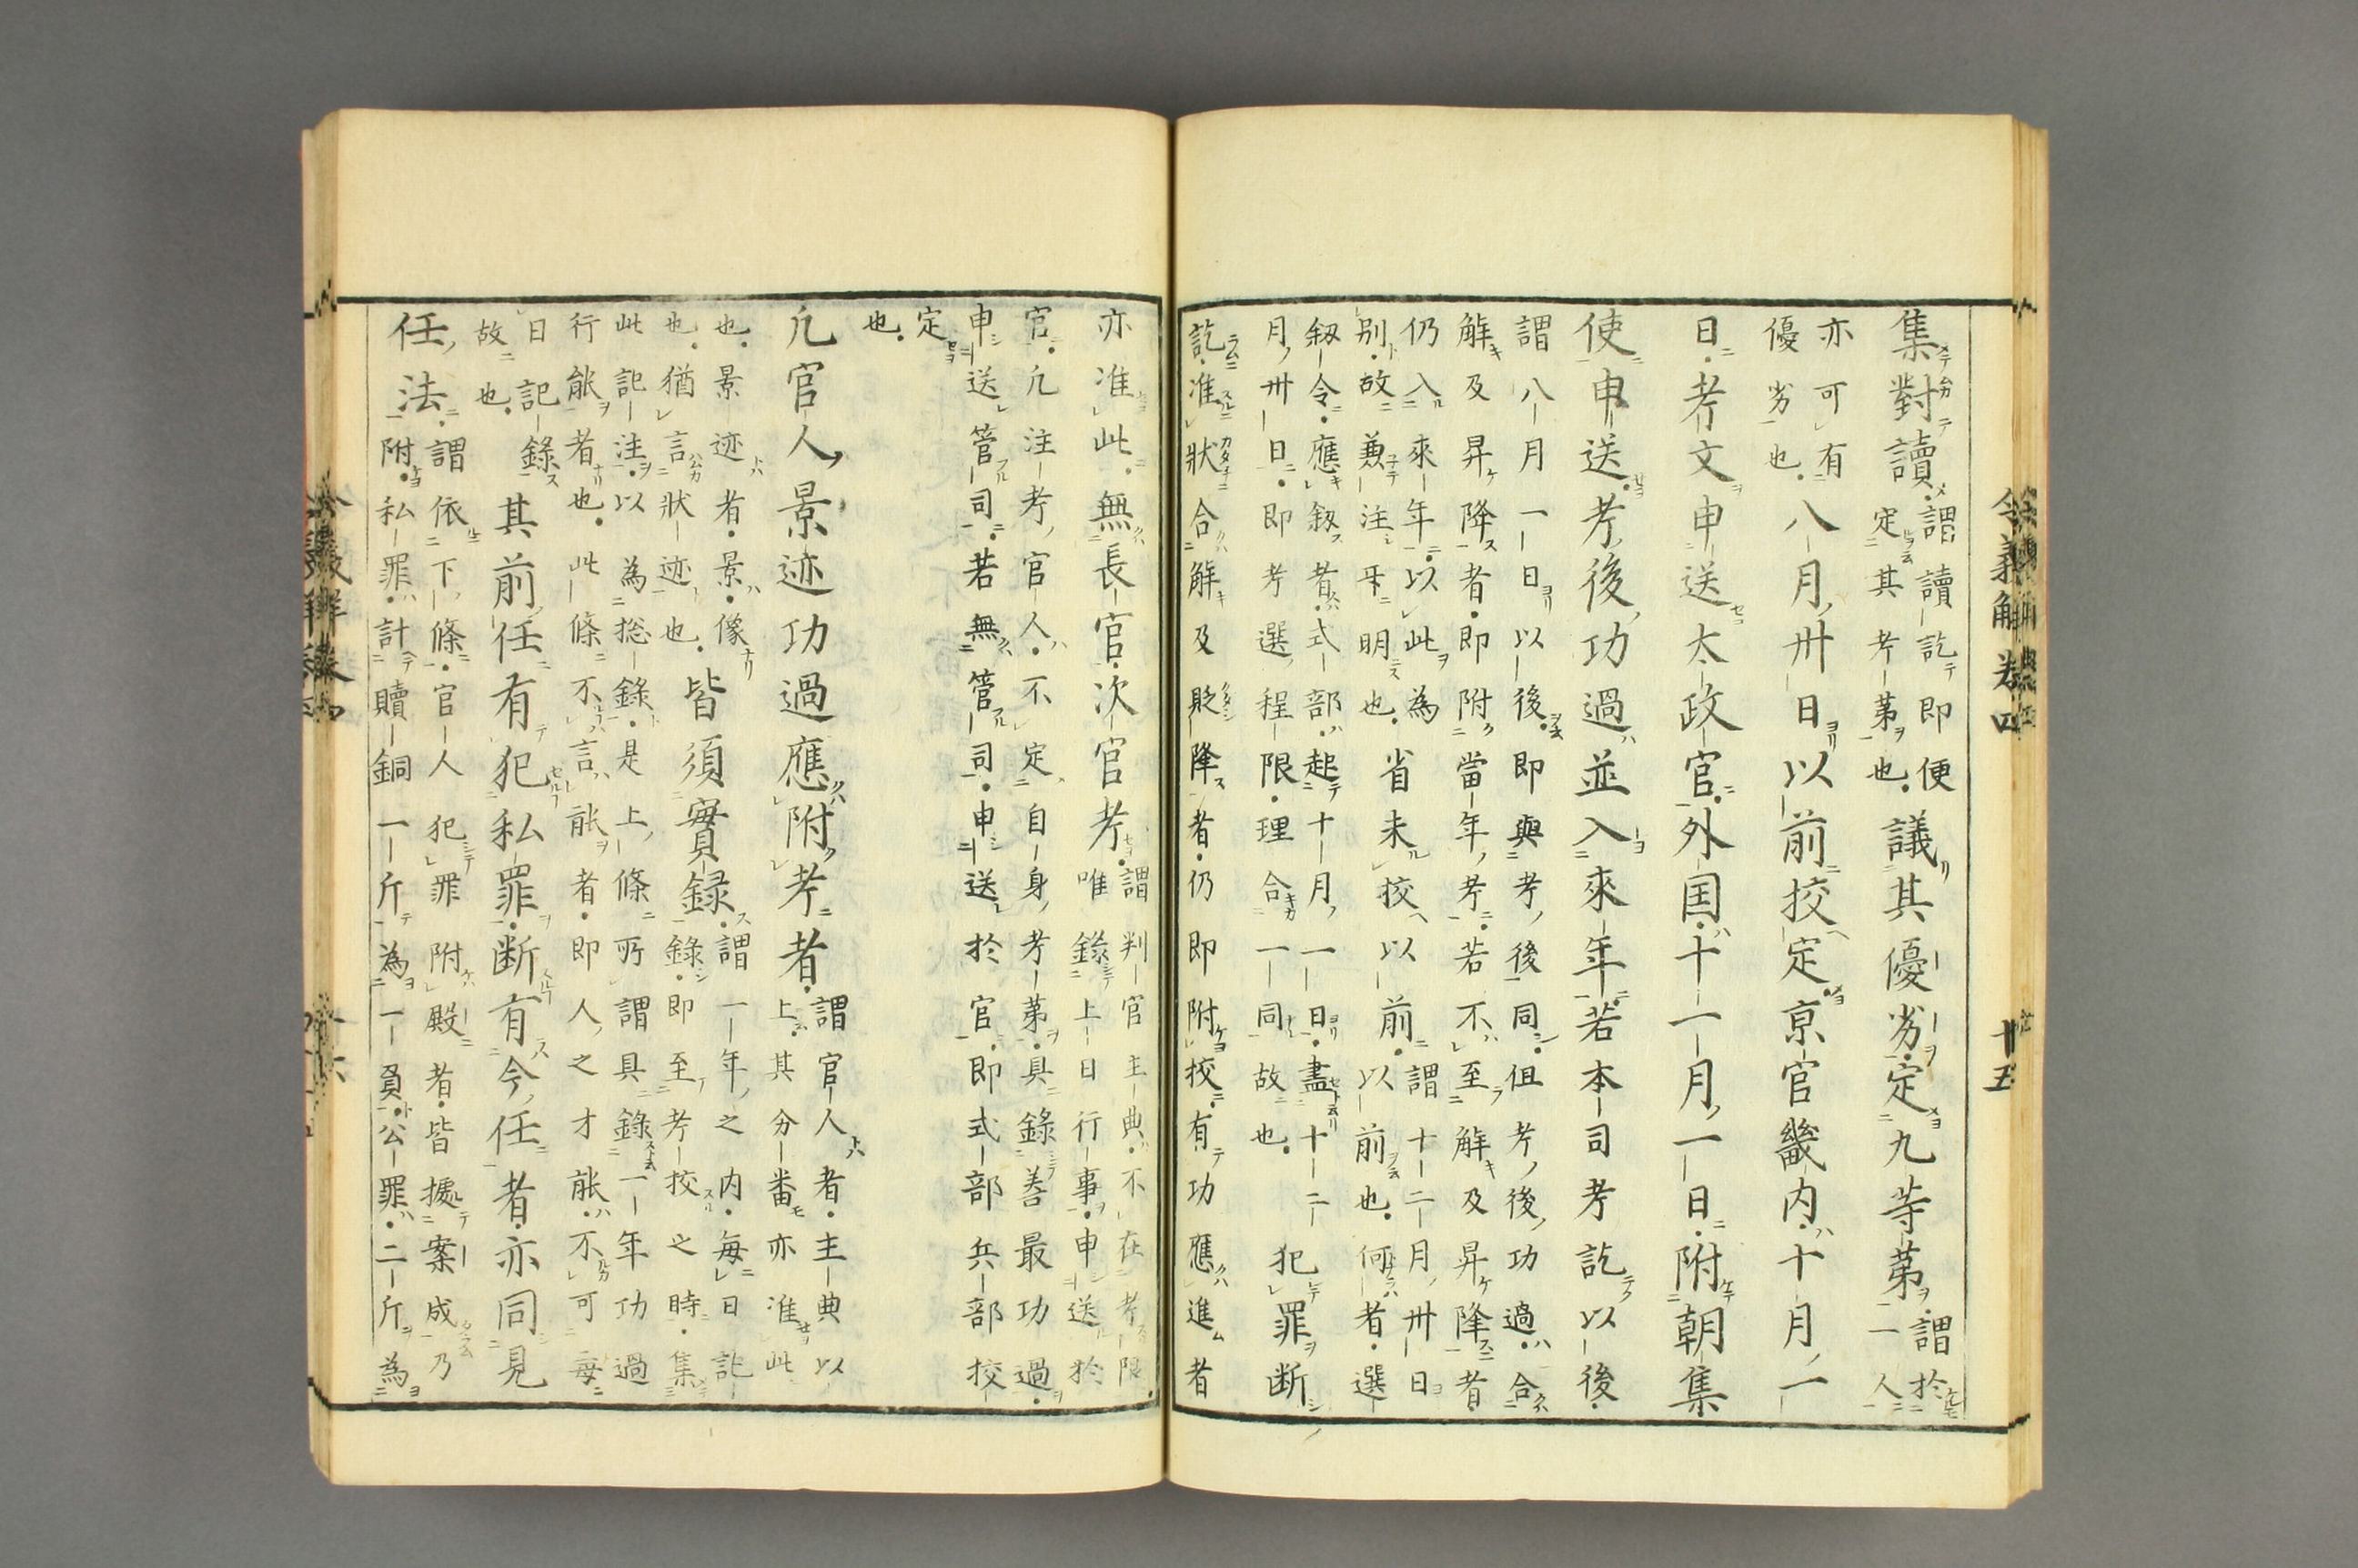 令義解卷四 十五
集對讀謂讀訖即便定其考第也議其優劣定九等第謂於一人
亦可有優劣也八月卅日以前挍定京官畿内十月一
日考文申送太政官外国十一月一日附朝集
使申送考後功過並入來年若本司考訖以後
謂八月一日以後即與考後同但考後功過合
解及昇降者即附當年考若不至解及昇降者
仍入來年以此為
別故兼注明也省未挍以前謂十二月卅日以前也何者選
叙令應叙者式部起十月一日盡十二
月卅日即考選程限理合一同故也犯罪断
訖准狀合解及貶降者仍即附挍有功應進者
亦准此無長官次官考謂判官主典不在考限唯錄上日行事申送於
官凡注考官人不定自身考第具錄善最功過
申送管司若無管司申送於官即式部兵部挍
定
也
凡官人景迹功過應附考者謂官人者主典以上其分番亦准此
也景迹者景像也猶言狀迹也皆須實録謂一年之内毎日記錄即至考挍之時集
此記注以為捴錄是上條所謂具錄一年功過
行能者也此條不言能者即人之才能不可毎
日記錄故也其前任有犯私罪断有今任者亦同見
任法謂依下條官人犯罪附殿者皆據案成乃
附私罪計贖銅一斤為一負公罪二斤為